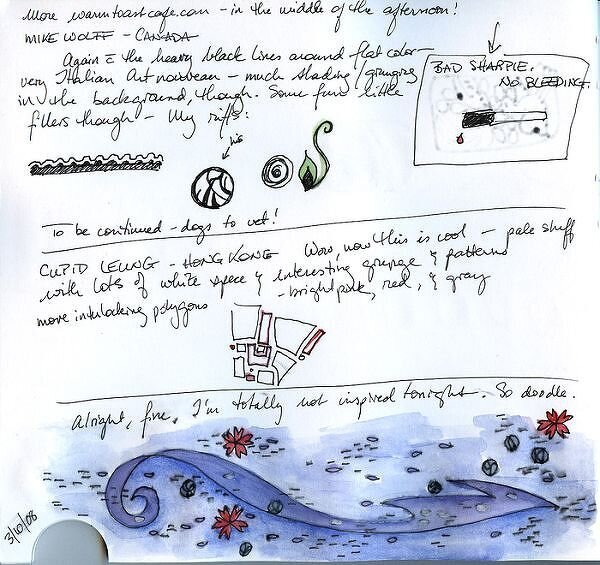 More warmtoastcafe.com - in the middle of the afternoon!
MIKE WOLFF - CANADA
Again = the heavy black lines around flat color -
very Italian Art nouveau - much shading/grunging
in the background, though. Some fun little
fillers though - My riffs:
BAD SHARPIE.
NO BLEEDING.
his
To be continued - dogs to vet!
CUPID LEUNG - HONG KONG Wow, now this is cool - pale stuff
with lots of white space & interesting grunge & patterns
- bright pink, red, & gray
more interlocking polygons
Alright, fine. I'm totally not inspired tonight. So doodle.
3/10/08